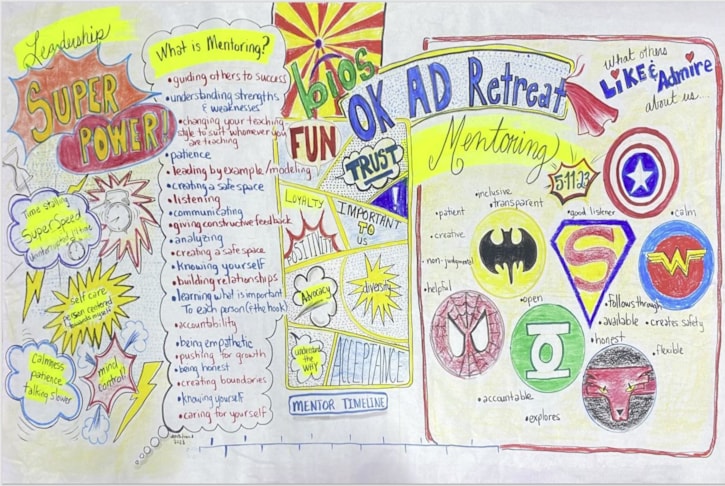 Leadership
SUPER
POWER!
Time stalling
Super Speed
Uninterrupted time
self care
person centered
towards myself
calmness
patience
talking slower
mind
control!
What is Mentoring?
•guiding others to success
•understanding strengths
& weaknesses
•changing your teaching
style to suit whomever you
are teaching
•patience
•leading by example/modeling
•creating a safe space
•listening
•communicating
•giving constructive feedback
•analyzing
•creating a safe space
•Knowing yourself
•building relationships
•learning what is important
To each person (the hook)
•accountability
•being empathetic
•pushing for growth
•being honest
•creating boundaries
•Knowing yourself
•caring for yourself
bios
OK AD Retreat
FUN
TRUST
LOYALTY
IMPORTANT
TO
US
POSITIVITY
Advocacy
diversity
understand
the WHY
ACCEPTANCE
MENTOR TIMELINE
what others
LiKE & Admire
about us...
Mentoring
5.11.23
•inclusive
•transparent
•patient
•good listener
•calm
•creative
•non-judgmental
S
W
•helpful
•open
•follows through
•available
•creates safety
•honest
•flexible
•accountable
•explores